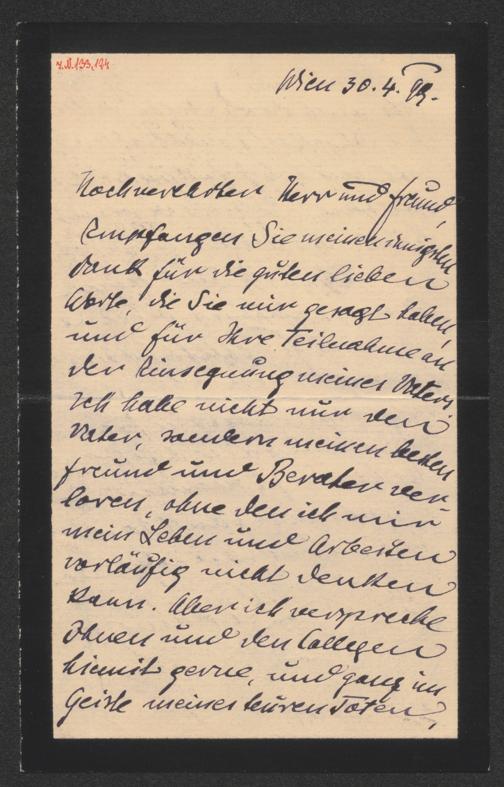 J.N. 133,174
Wien 30.4.
Hochverehrter Herr und Freund,
Empfangen Sie meinen innigsten
Dank für die guten lieben
Worte, die Sie mir gesagt haben,
und für Ihre Teilnahme an
der Einsegnung meines Vaters.
Ich habe nicht nur den
Vater, sondern meinen besten
Freund und Berater ver-
loren, ohne den ich mir
mein Leben und Arbeiten
vorläufig nicht denken
kann. Aber ich verspreche
Ihnen und den Collegen
hiemit gerne, und ganz im
Geiste meines teuren Toten,